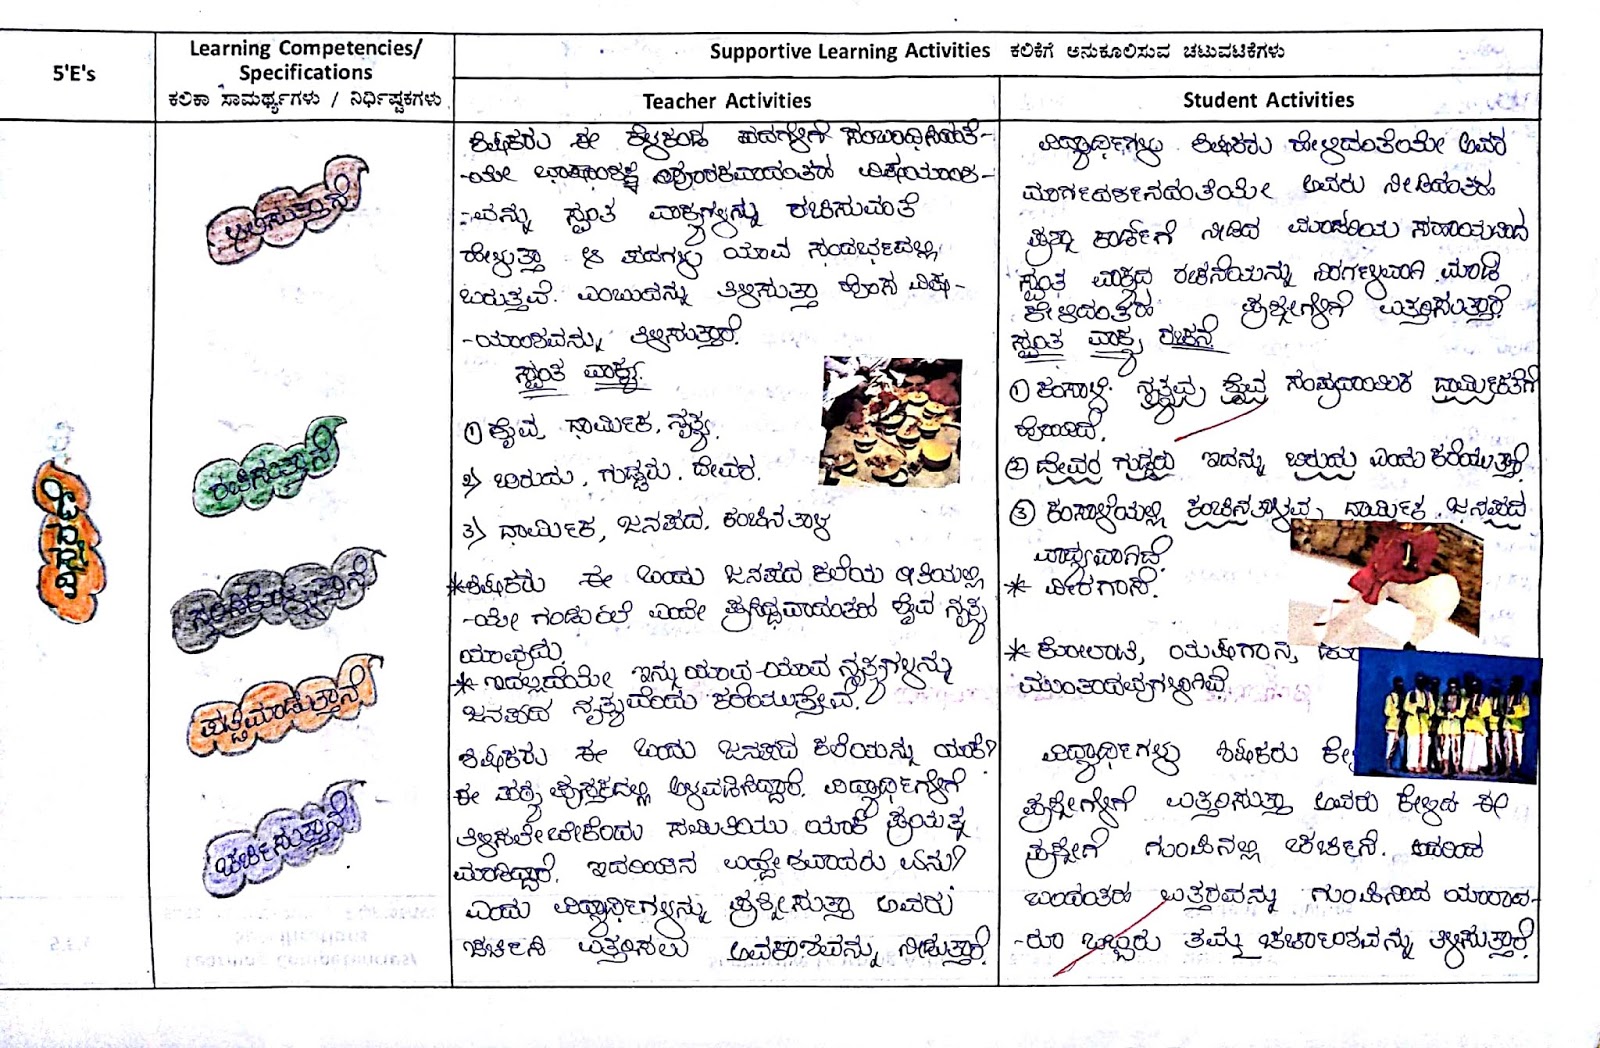 5'E's
Learning Competencies/
Specifications
ಕಲಿಕಾ ಸಾಮರ್ಥ್ಯಗಳು / ನಿರ್ಧಿಷ್ಟಕಗಳು
Supportive Learning Activities ಕಲಿಕೆಗೆ ಅನುಕೂಲಿಸುವ ಚಟುವಟಿಕೆಗಳು
Teacher Activities
Student Activities
ರಚಿಸುತ್ತಾನೆ
ಪಟ್ಟಿಮಾಡುತ್ತಾನೆ
ಚರ್ಚಿಸುತ್ತಾನೆ
ಶಿಕ್ಷಕರು ಈ ಕೆಳಕಂಡ ಪದಗಳಿಗೆ ಸಂಬಂಧಿಸಿದಂತೆ-
-ಯೇ ಭಾಷಾಂಶಕ್ಕೆ ಪೂರಕವಾದಂತಹ ವಿಷಯಾಂಶ-
-ವನ್ನು ಸ್ವಂತ ವಾಕ್ಯಗಳನ್ನು ರಚಿಸುವಂತೆ
ಹೇಳುತ್ತಾ ಆ ಪದಗಳು ಯಾವ ಸಂದರ್ಭದಲ್ಲಿ
ಬರುತ್ತವೆ. ಎಂಬುದನ್ನು ತಿಳಿಸುತ್ತಾ ಹೊಸ ವಿಷ-
-ಯಾಂಶವನ್ನು ತಿಳಿಸುತ್ತಾರೆ.
ಸ್ವಂತ ವಾಕ್ಯ.
1) ಶೈವ ಧಾರ್ಮಿಕ, ನೃತ್ಯ.
2) ಬಿರುದು, ಗುಡ್ಡರು. ದೇವರ.
3) ಧಾರ್ಮಿಕ, ಜನಪದ. ಕಂಚಿನ ತಾಳ
*ಶಿಕ್ಷಕರು ಈ ಒಂದು ಜನಪದ ಕಲೆಯ ರೀತಿಯಲ್ಲಿ
-ಯೇ ಗಂಡುಕಲೆ ಎಂದೇ ಪ್ರಸಿದ್ಧವಾದಂತಹ ಶೈವ ನೃತ್ಯ
ಯಾವುದು.
* ಇದಲ್ಲದೆಯೇ ಇನ್ನು ಯಾವ-ಯಾವ ನೃತ್ಯಗಳನ್ನು
ಜನಪದ ನೃತ್ಯವೆಂದು ಕರೆಯುತ್ತೇವೆ.
ಶಿಕ್ಷಕರು ಈ ಒಂದು ಜನಪದ ಕಲೆಯನ್ನು ಯಾಕೆ?
ಈ ಪಠ್ಯ ಪುಸ್ತಕದಲ್ಲಿ ಅಳವಡಿಸಿದ್ದಾರೆ. ವಿದ್ಯಾರ್ಥಿಗಳಿಗೆ
ತಿಳಿಸಲೇಬೇಕೆಂದು ಸಮಿತಿಯು ಯಾಕೆ ಪ್ರಯತ್ನ
ಮಾಡಿದ್ದಾರೆ. ಇದರಿಂದಿನ ಉದ್ದೇಶವಾದರು ಏನು?
ಎಂದು ವಿದ್ಯಾರ್ಥಿಗಳನ್ನು ಪ್ರಶ್ನಿಸುತ್ತಾ ಅವರು
ಚರ್ಚಿಸಿ ಉತ್ತರಿಸಲು ಅವಕಾಶವನ್ನು ನೀಡುತ್ತಾರೆ.
ವಿದ್ಯಾರ್ಥಿಗಳು ಶಿಕ್ಷಕರು ಹೇಳಿದಂತೆಯೇ ಅವರ
ಮಾರ್ಗದರ್ಶನದಂತೆಯೇ ಅವರು ನೀಡಿದಂತಹ
ಪ್ರಶ್ನಾ ಕಾರ್ಡ್‌ಗೆ ನೀಡಿದ ಮಾದರಿಯ ಸಹಾಯದಿಂದ
ಸ್ವಂತ ವಾಕ್ಯದ ರಚನೆಯನ್ನು ನಿರರ್ಗಳವಾಗಿ ಮಾಡಿ
ಕೇಳಿದಂತಹ ಪ್ರಶ್ನೆಗಳಿಗೆ ಉತ್ತರಿಸುತ್ತಾರೆ.
ಸ್ವಂತ ವಾಕ್ಯ ರಚನೆ
1) ಕಂಸಾಳೆ ನೃತ್ಯವು ಶೈವ ಸಂಪ್ರದಾಯಿಕ ಧಾರ್ಮಿಕತೆಗೆ
ಹೊಂದಿದೆ.
2) ದೇವರ ಗುಡ್ಡರು ಇದನ್ನು ಬಿರುದು ಎಂದು ಕರೆಯುತ್ತಾರೆ.
3) ಕಂಸಾಳೆಯಲ್ಲಿ ಕಂಚಿನತಾಳವು ಧಾರ್ಮಿಕ ಜನಪದ
ವಾದ್ಯವಾಗಿದೆ.
* ವೀರಗಾಸೆ.
* ಕೋಲಾಟ, ಯಕ್ಷಗಾನ,
ಮುಂತಾದವುಗಳಾಗಿವೆ.
ವಿದ್ಯಾರ್ಥಿಗಳು ಶಿಕ್ಷಕರು
ಪ್ರಶ್ನೆಗಳಿಗೆ ಉತ್ತರಿಸುತ್ತಾ ಅವರು ಕೇಳಿದ ಈ
ಪ್ರಶ್ನೆಗೆ ಗುಂಪಿನಲ್ಲಿ ಚರ್ಚಿಸಿ. ಅದರಿಂದ
ಬಂದಂತಹ ಉತ್ತರವನ್ನು ಗುಂಪಿನಿಂದ ಯಾರಾದ-
-ರೂ ಒಬ್ಬರು ತಮ್ಮ ಚರ್ಚಾಂಶವನ್ನು ತಿಳಿಸುತ್ತಾರೆ.